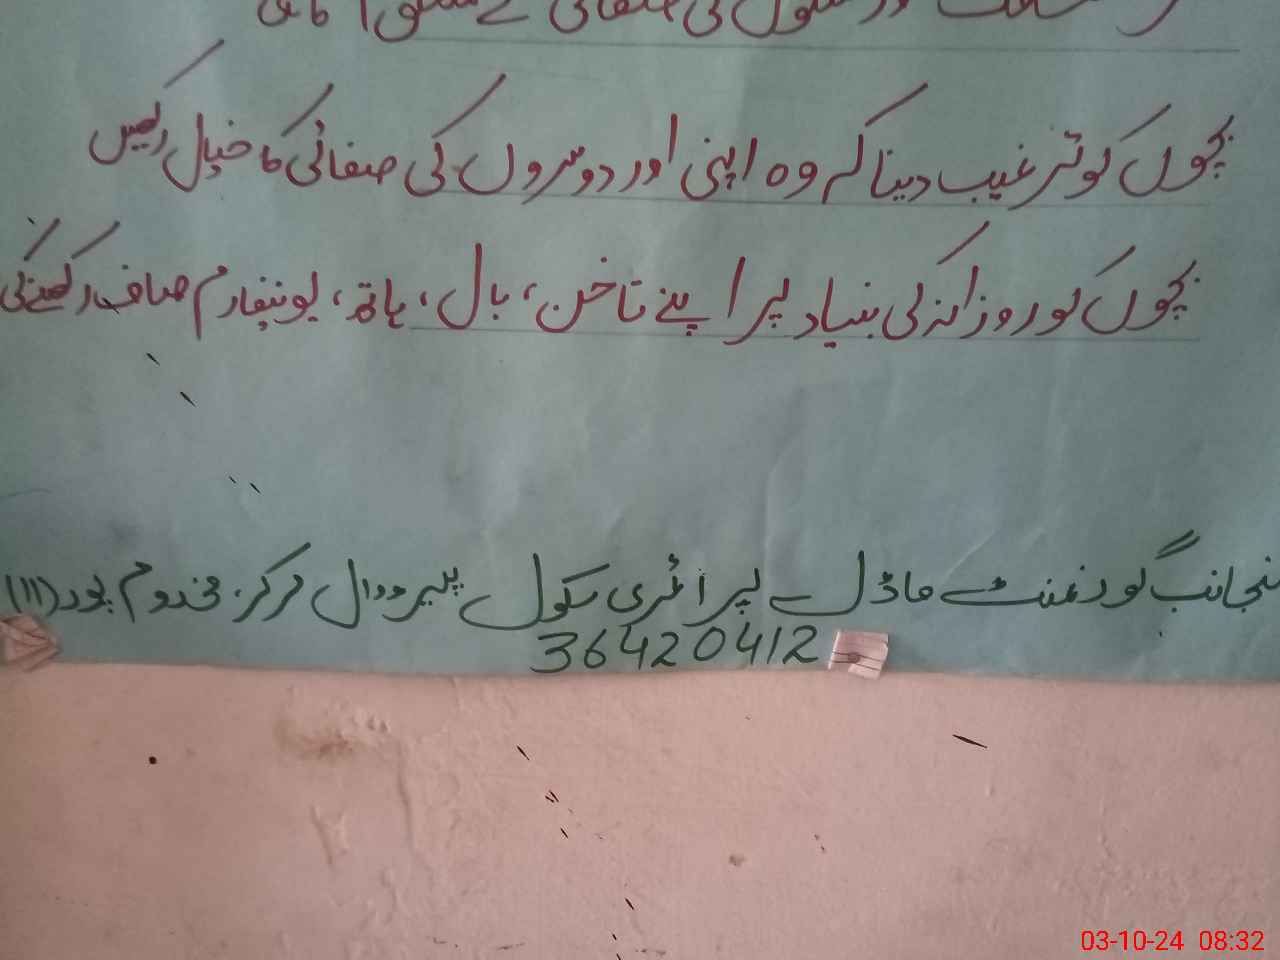 کی صفائی کے متعلق آگاہی
بچوں کو ترغیب دینا کہ وہ اپنی اور دوسروں کی صفائی کا خیال رکھیں
بچوں کو روزانہ کی بنیاد پر اپنے ناخن، بال، ہاتھ، یونیفارم صاف رکھنے کی
منجانب گورنمنٹ ماڈل پرائمری سکول پیرووال مرکز، مخدوم پور (۱۱)
36420412
03-10-24 08:32